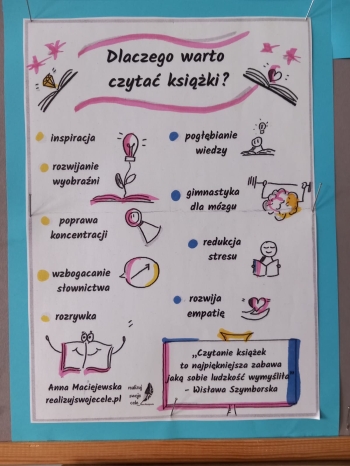 Dlaczego warto
czytać książki?
inspiracja
rozwijanie
wyobraźni
poprawa
koncentracji
wzbogacanie
słownictwa
rozrywka
pogłębianie
wiedzy
gimnastyka
dla mózgu
redukcja
stresu
rozwija
empatię
Anna Maciejewska
realizujswojecele.pl
realizuj
swoje
cele
„Czytanie książek
to najpiękniejsza zabawa
jaką sobie ludzkość wymyśliła"
- Wisława Szymborska